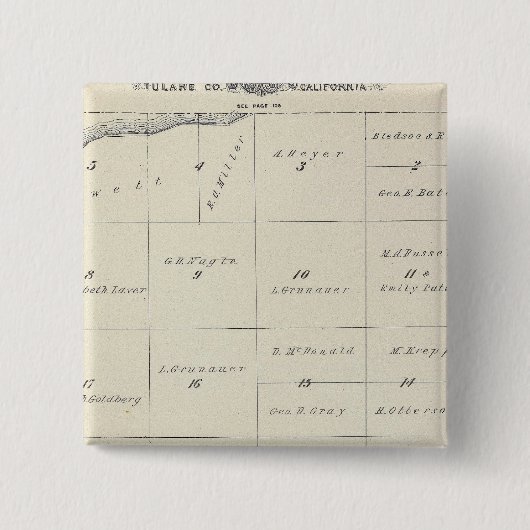 TULARE CO. CALIFORNIA
SEE PAGE 128
5
4
R.O. Miller
A. Heyer
3
Bledsoe & R
2
Geo. E. Bat
wett
8
beth Laver
G.H. Nagte
9
10
L. Grunauer
M.A. Russe
11 &
Emily Patt
17
Goldberg
L. Grunauer
16
D. McDonald
15
Geo. D. Gray
Mc Krepp
14
H. Otterso